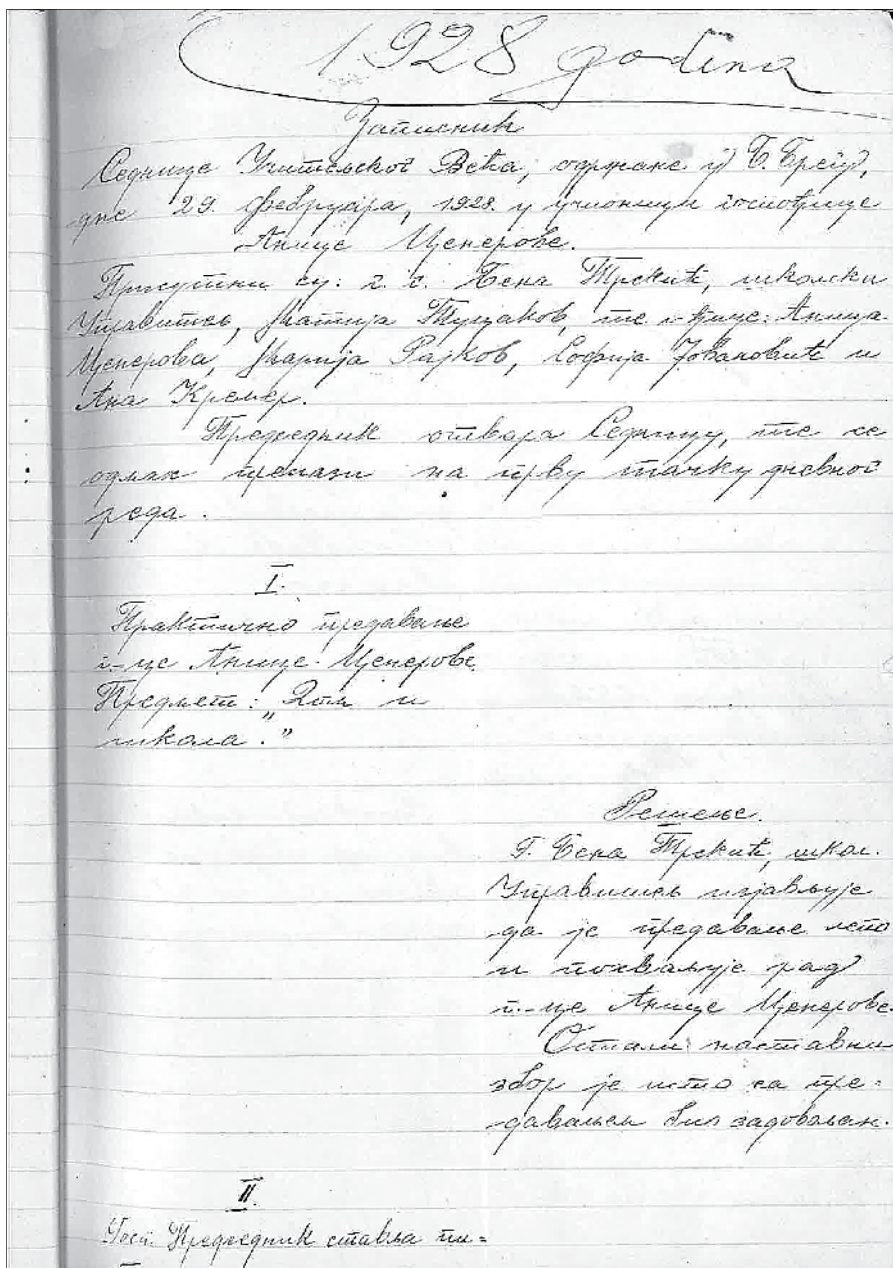 1928 година
Записник
Седнице Учитељског Већа, одржане у Б. Брегу,
дне 29. фебруара, 1928. у учионици госпођице
Анице Ценерове.
Присутни су: г. г. Васа Трекић, школски
Управитељ, Матија Тушаков, те г-ђице: Аница
Ценерова, Марија Рајков, Софија Јовановић и
Ана Кремер.
Председник отвара Седницу, те се
одмах прелази на прву тачку дневног
реда.
I.
Практично предавање
г-це Анице Ценерове.
Предмет: „Дом и
школа."
Решење.
Г. Трекић, школ.
Управитељ изјављује
да је предавање лепо
и похваљује рад
г-це Анице Ценерове.
Остали наставни
збор је исто са пре-
давањем био задовољан.
II.
Госп. Председник ставља пи=